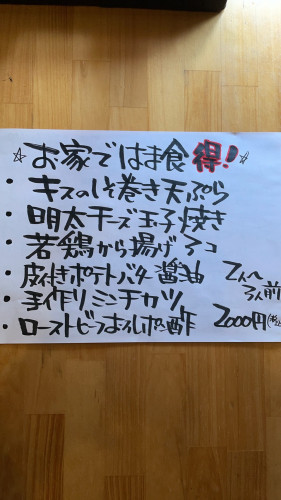 ☆お家ではま食得!☆
・キスのしそ巻き天ぷら
・明太チーズ玉子焼き
・若鶏から揚げ5コ
・皮付きポテトバター醤油
2人〜
3人前
・手作りミンチカツ
・ローストビーフおろしポン酢
2000円